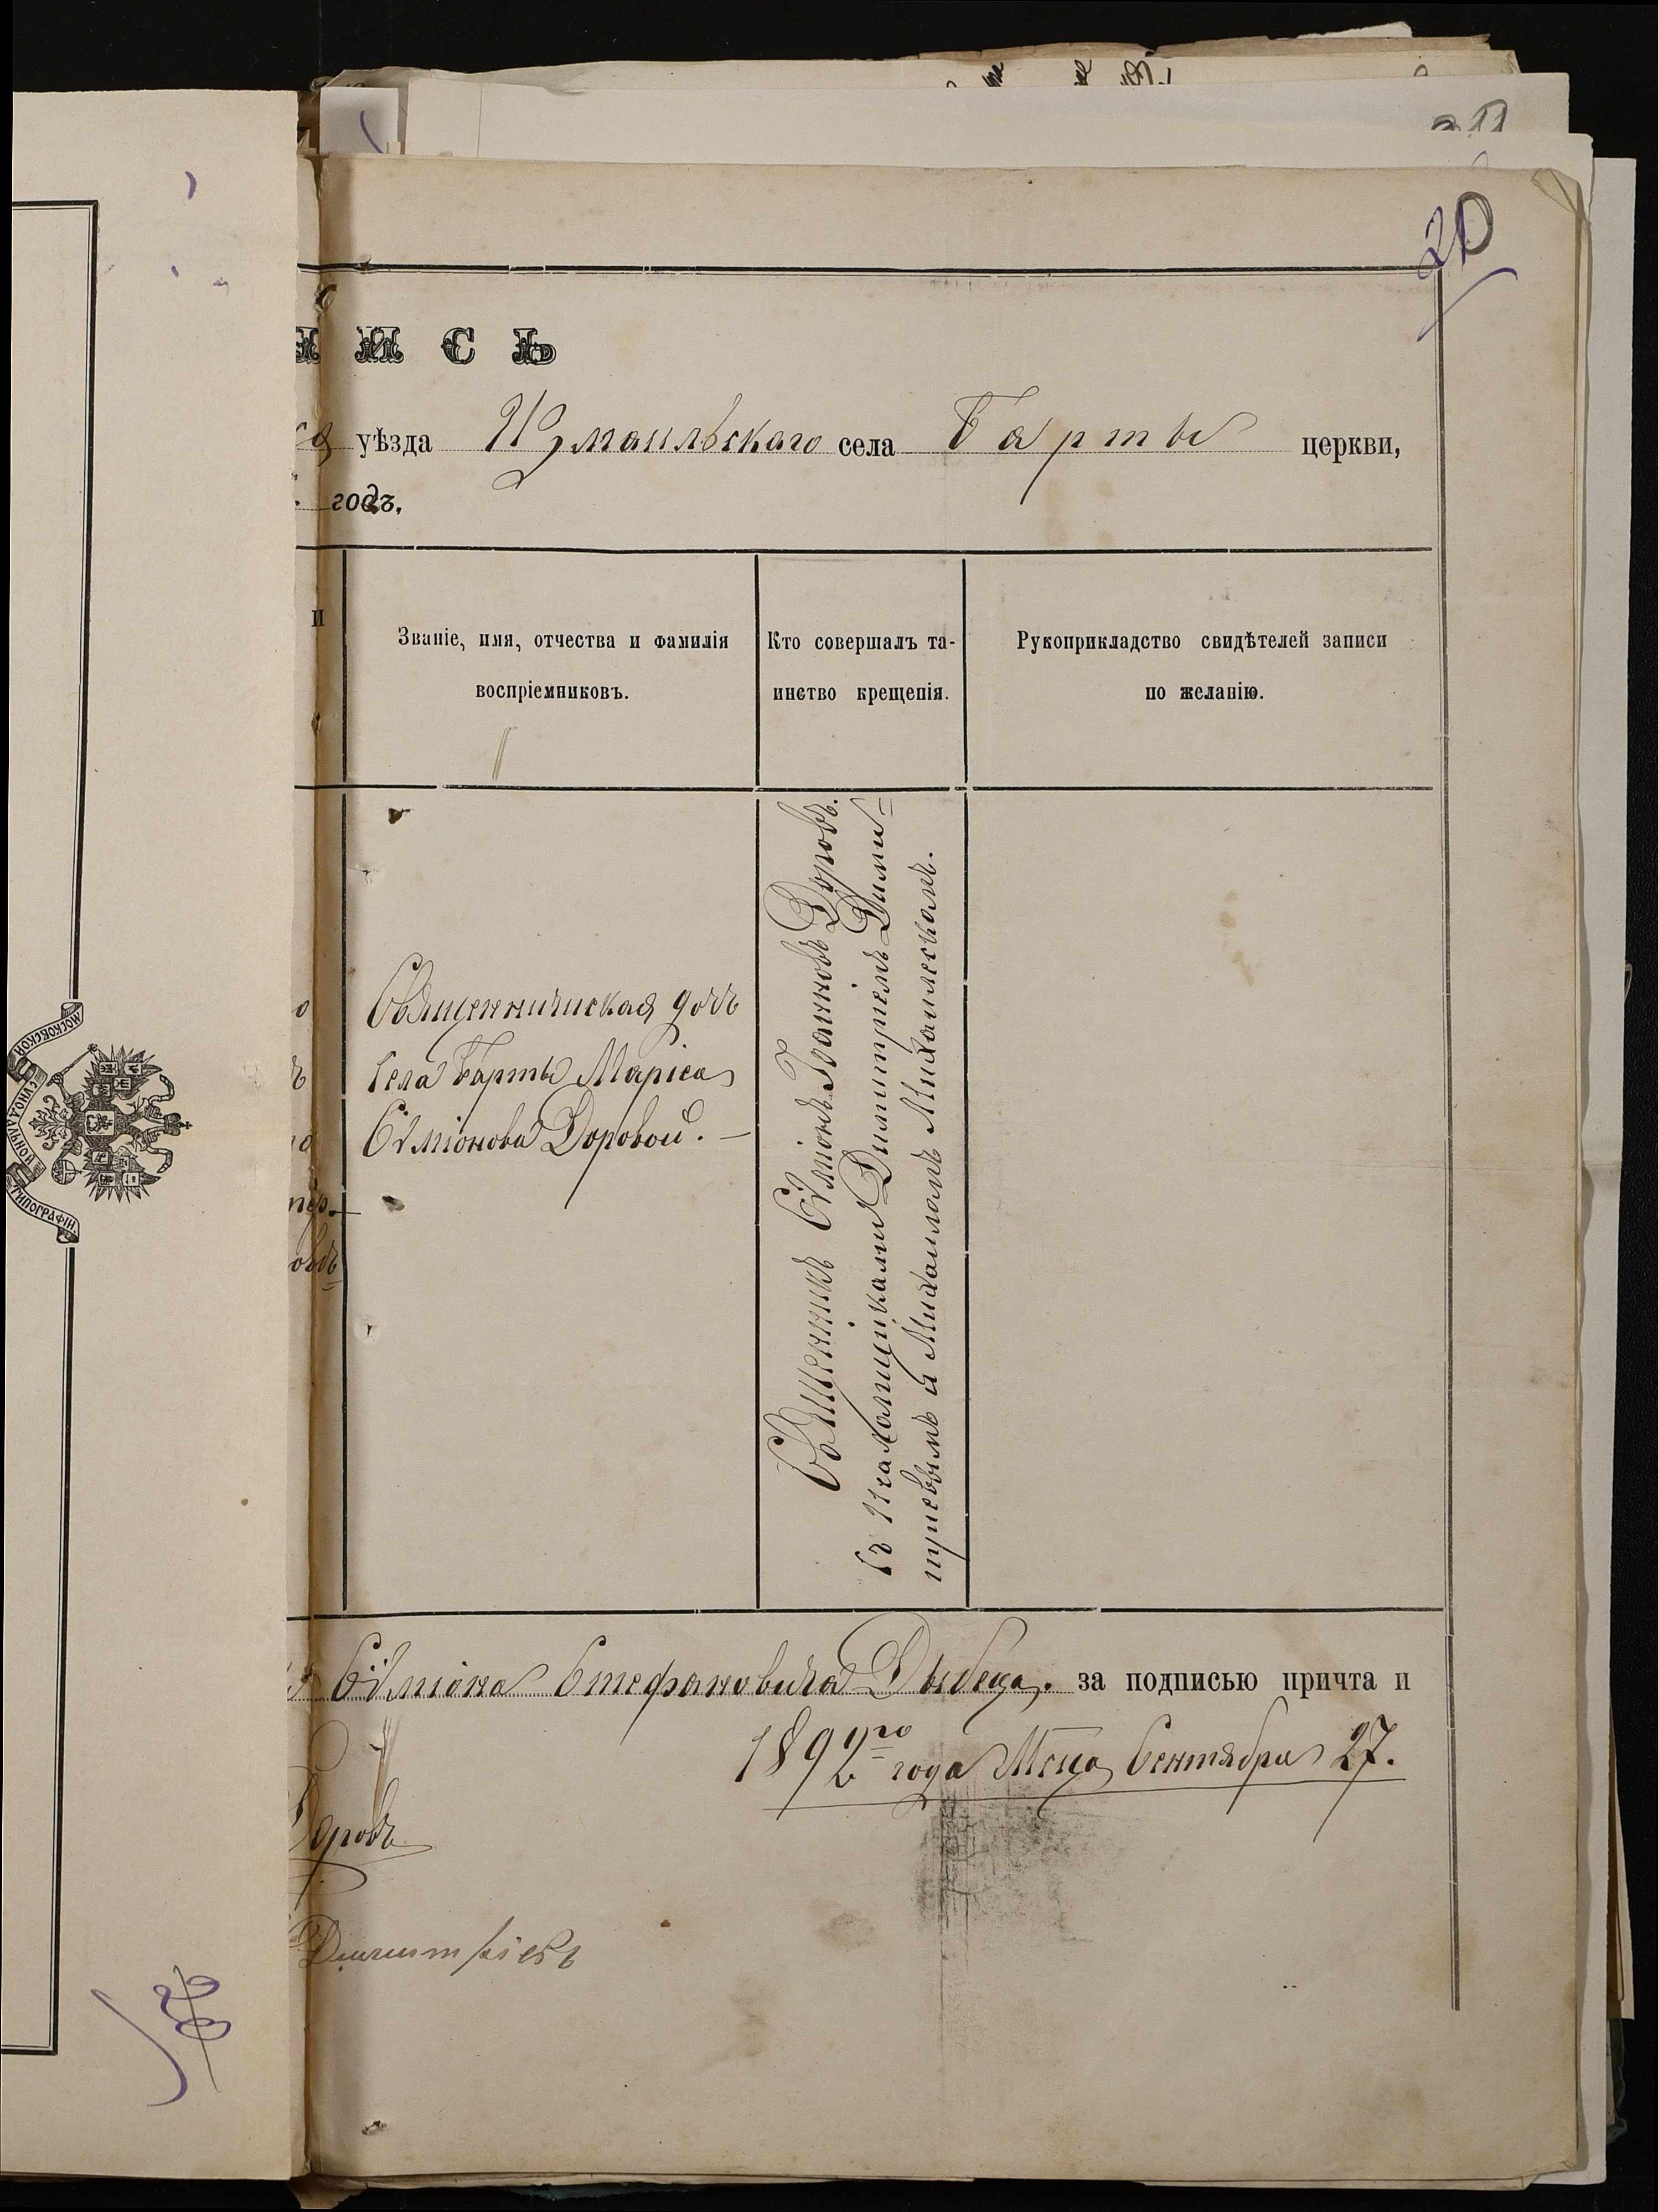 20
ИСЬ
уѣзда Измаильскаго села Барты церкви,
годъ.
Званіе, имя, отчества и фамилія
воспріемниковъ.
Кто совершалъ та-
инство крещенія.
Рукоприкладство свидѣтелей записи
по желанію.
Священническая дочь
села Барты Марiса
Сѵміонова Доровои. —
Священникъ Сѵміонъ Іоанновъ Доровъ.
съ псаломщиками Димитріемъ Дими=
тріевымъ и Михаиломъ Михаилескомъ.
Сѵміона Стефановича Дыбеца. за подписью причта и
1892го года Мсца Сентября 27.
Доровъ
Димитріевъ
МОСКОВСКОЙ
СИНОДАЛЬНОЙ
ТИПОГРАФІИ.